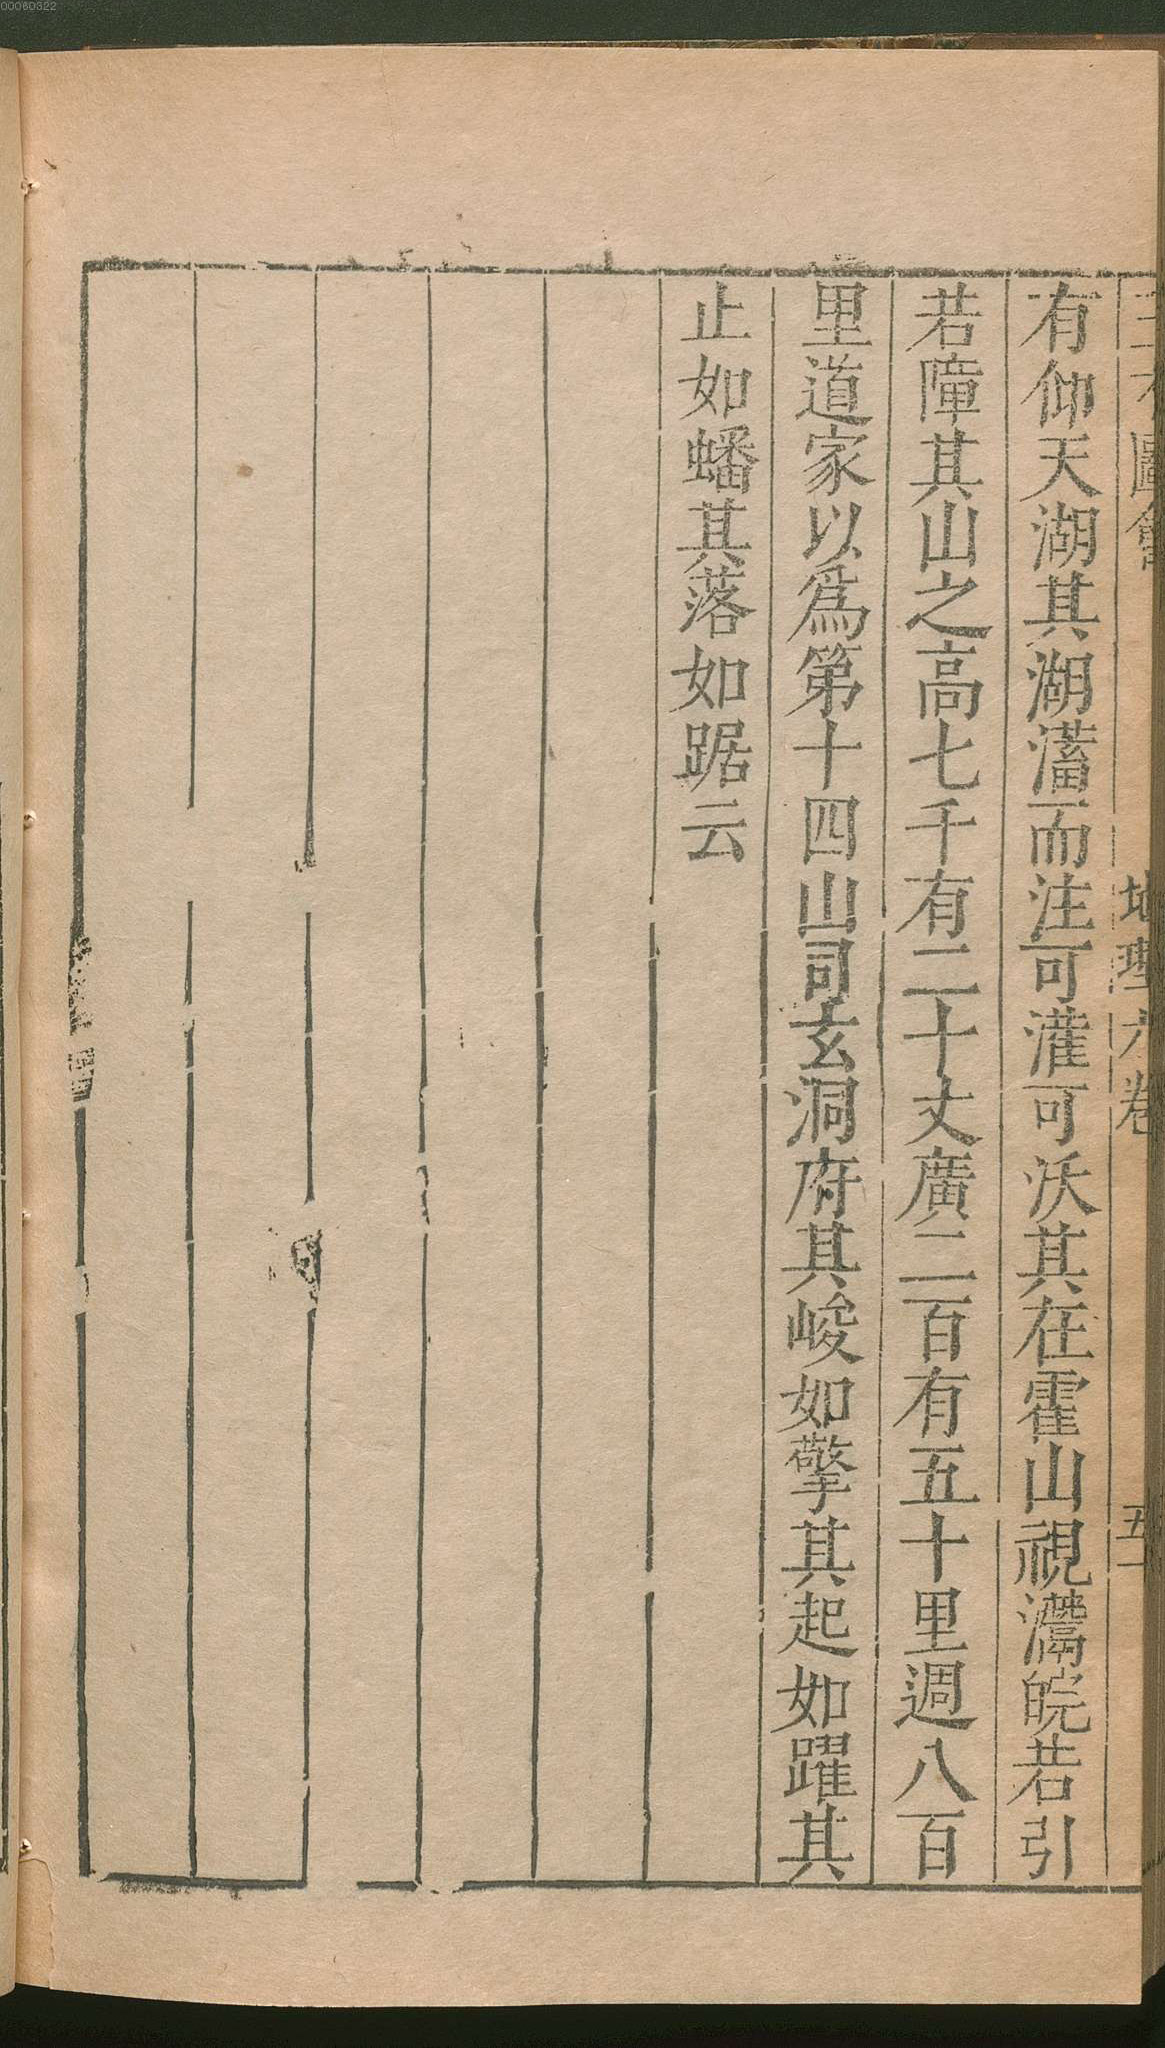 00060322
三才圖會 地理六卷 五十
有仰天湖其湖滀而注可灌可沃其在霍山視灊皖若引
若障其山之高七千有二十丈廣二百有五十里週八百
里道家以爲第十四山司玄洞府其峻如擎其起如躍其
止如蟠其落如踞云